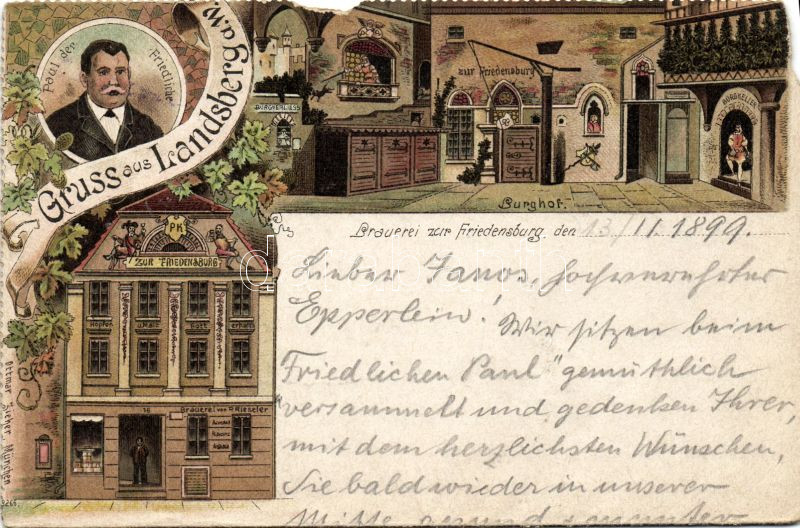 Paul der Friedliche
Gruss aus Landsberg a.W.
BURGVERLIESS
zur Friedensburg
BURGKELLER
Burghof.
Brauerei zur Friedensburg, den 13/11 1899.
PK
ZUR FRIEDENSBURG
Hopfen u. Malz Gott erhalt's
16
Brauerei von P. Kieseler
Ottmar Zieher, München
Lieber Janos, hochverehrter
Epperlein! Wir sitzen beim
Friedlichen Paul" gemüthlich
versammelt und gedenken Ihrer,
mit dem herzlichsten Wünschen,
Sie bald wieder in unserer
Mitte gesund